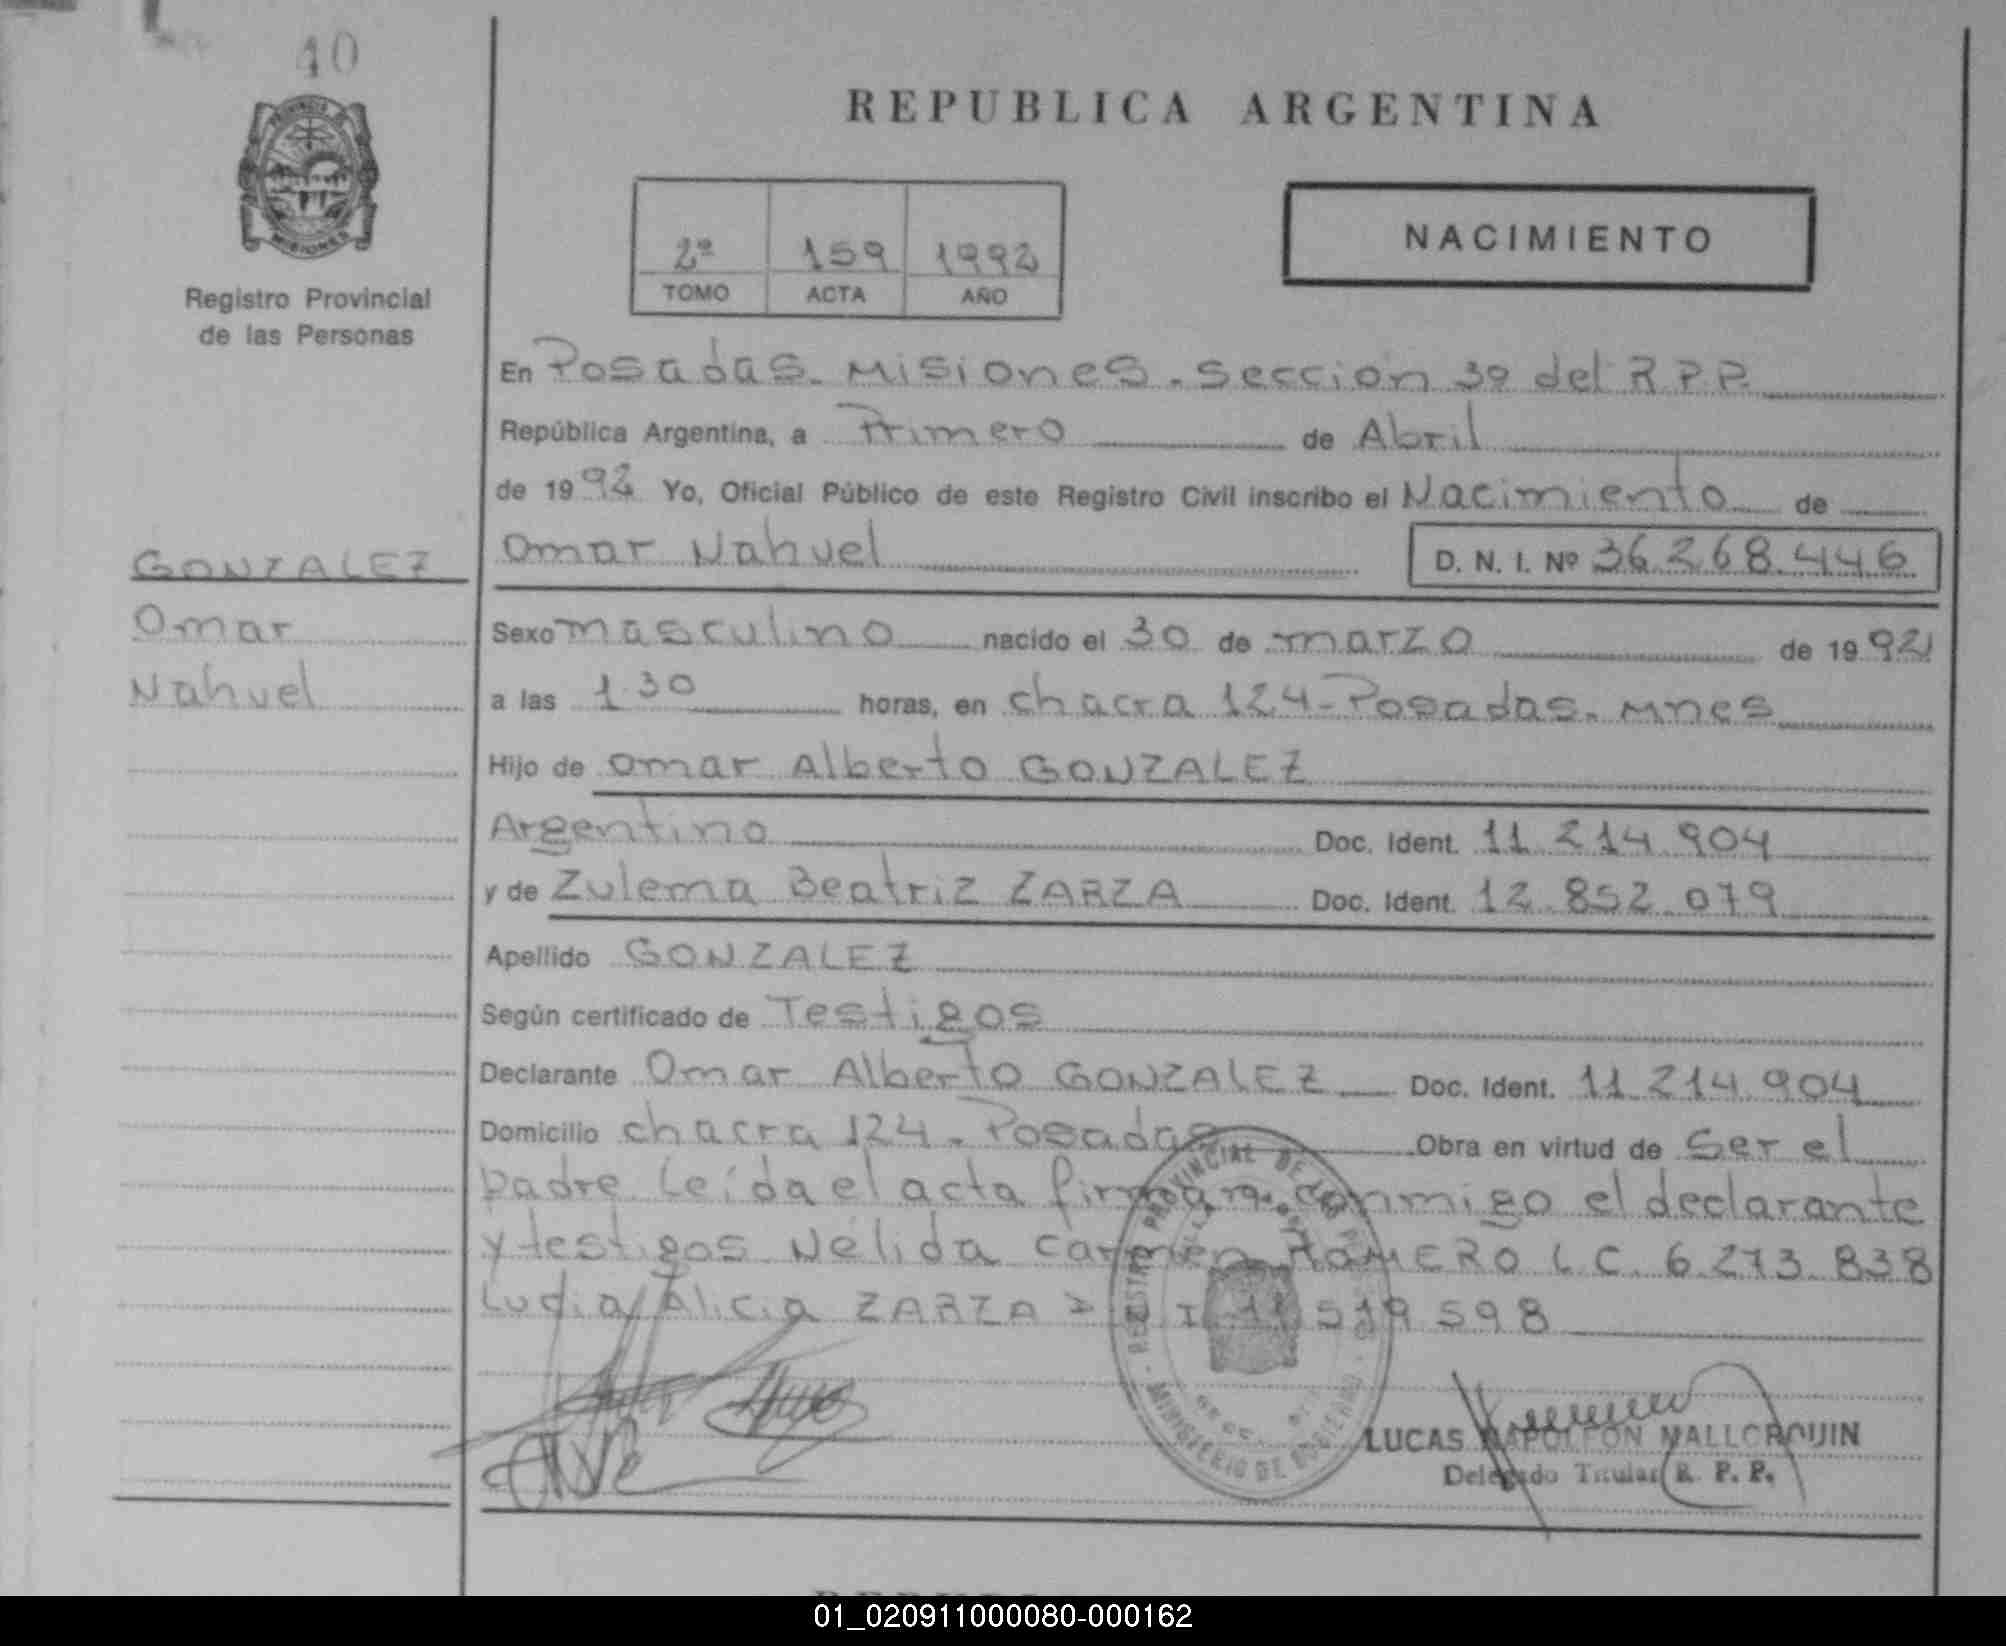 40
REPUBLICA ARGENTINA
PROVINCIA DE
MISIONES
Registro Provincial
de las Personas
2º 159 1992
TOMO ACTA AÑO
NACIMIENTO
En Posadas. Misiones. Sección 3º del R.P.P.
República Argentina, a Primero de Abril
de 1992 Yo, Oficial Público de este Registro Civil inscribo el Nacimiento de
Omar Nahuel D. N. I. Nº 36.268.446
GONZALEZ
Omar
Nahuel
Sexo masculino nacido el 30 de marzo de 1992
a las 1.30 horas, en chacra 124-Posadas. Mnes
Hijo de Omar Alberto GONZALEZ
Argentino Doc. Ident. 11.214.904
y de Zulema Beatriz ZARZA Doc. Ident. 12.852.079
Apellido GONZALEZ
Según certificado de Testigos
Declarante Omar Alberto GONZALEZ Doc. Ident. 11.214.904
Domicilio chacra 124. Posadas Obra en virtud de ser el
padre Leída el acta firman conmigo el declarante
y testigos Nélida Carmen ROMERO L C. 6.273.838
Alicia ZARZA
REGISTRO PROVINCIAL DE LAS
MINISTERIO DE GOBIERNO
LUCAS NAPOLEON MALLORQUIN
Delegado Titular R. P. P.
01_020911000080-000162